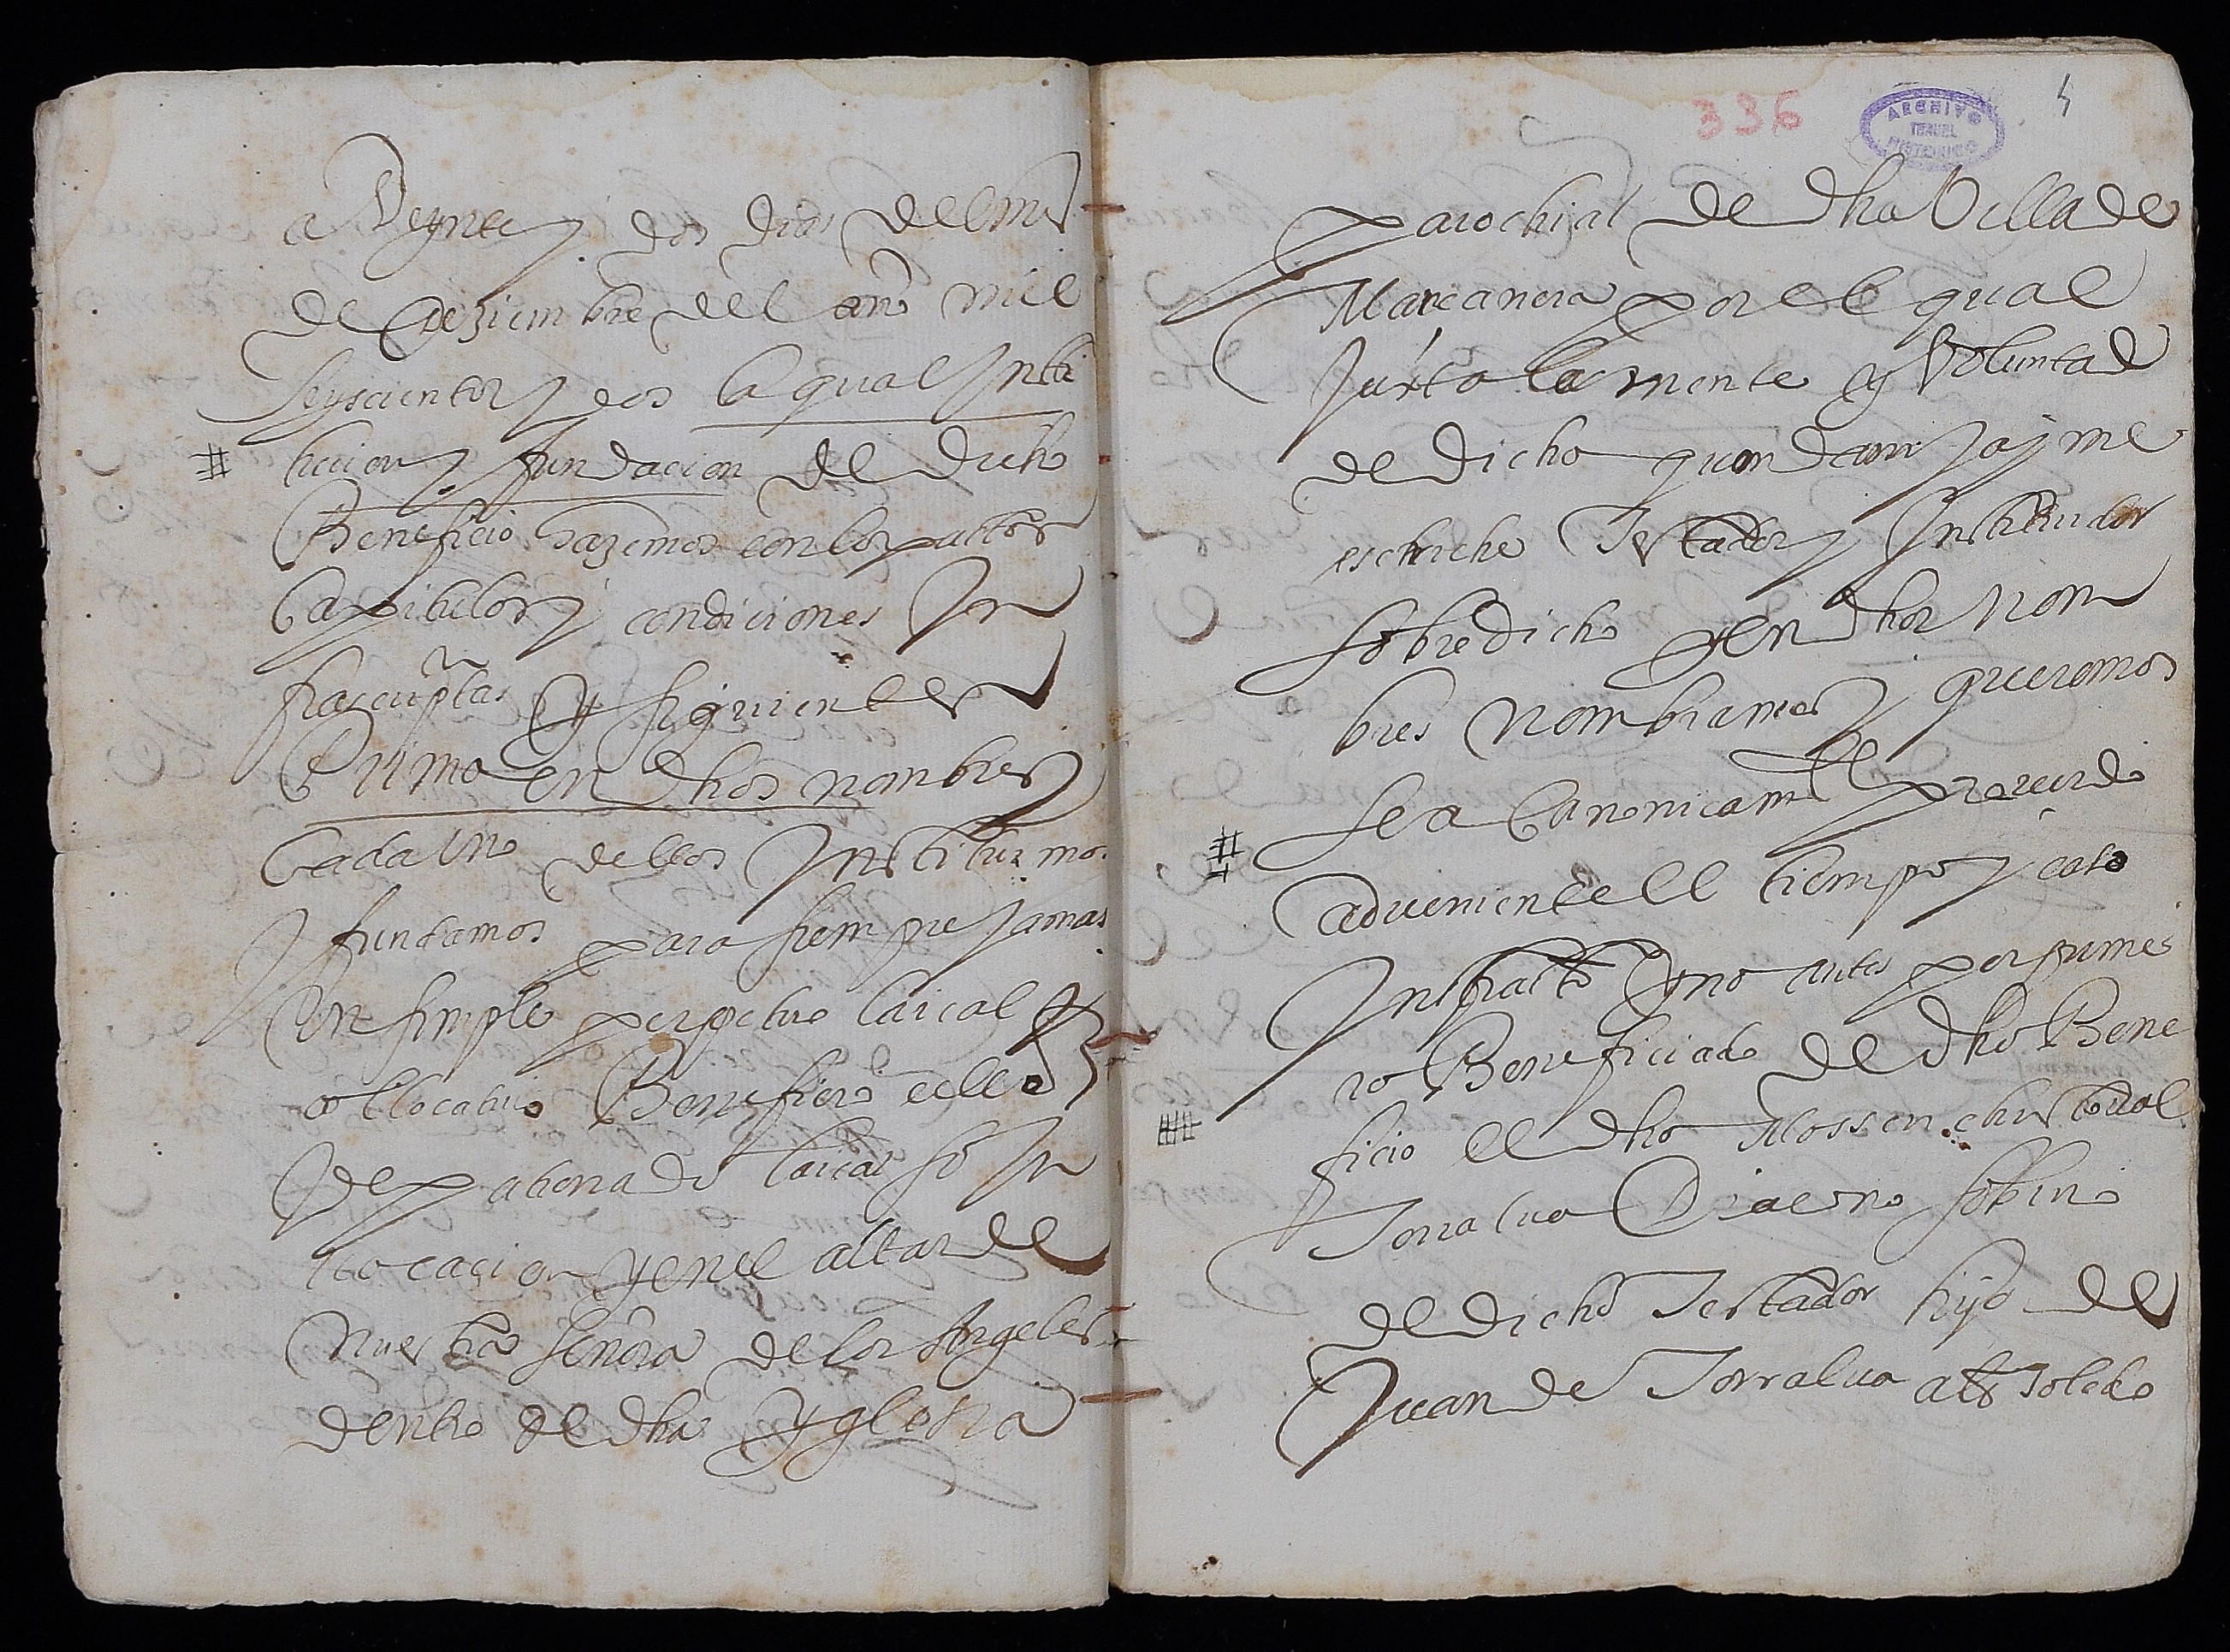 a Veynte y dos dias del mes
de Deziembre del año mil
seyscientos y dos la qual Insti
tucion y fundacion de dicho
Beneficio hazemos con los pactos
Capitulos y condiciones In
frascriptas y siguientes
Primo en dhos nombres y
Cada Uno dellos Instituimos
y fundamos para siempre Jamas
Un simple perpetuo laical
collocatiuo Beneficio ecclco
y de patronado laical so In
uocacion y en el altar de
Nuestra Señora de los Angeles
dentro de dha Yglesia
336
ARCHIVO
TERUEL
HISTORICO
parochial de dha Villa de
Mancanera por el qual
Juxta la mente y Voluntad
de dicho quondam Jayme
escriche Testador y Instituidor
sobredicho y en dhos nom
bres nombramos y queremos
sea Canonicamte proueido
adueniente el tiempo y caso
Infrascto y no antes por prime
ro Beneficiado de dho Bene
ficio el dho Mossen christoual
Torralua Diacono sobrino
de dicho Testador hijo de
Juan de Torralua als Toledo